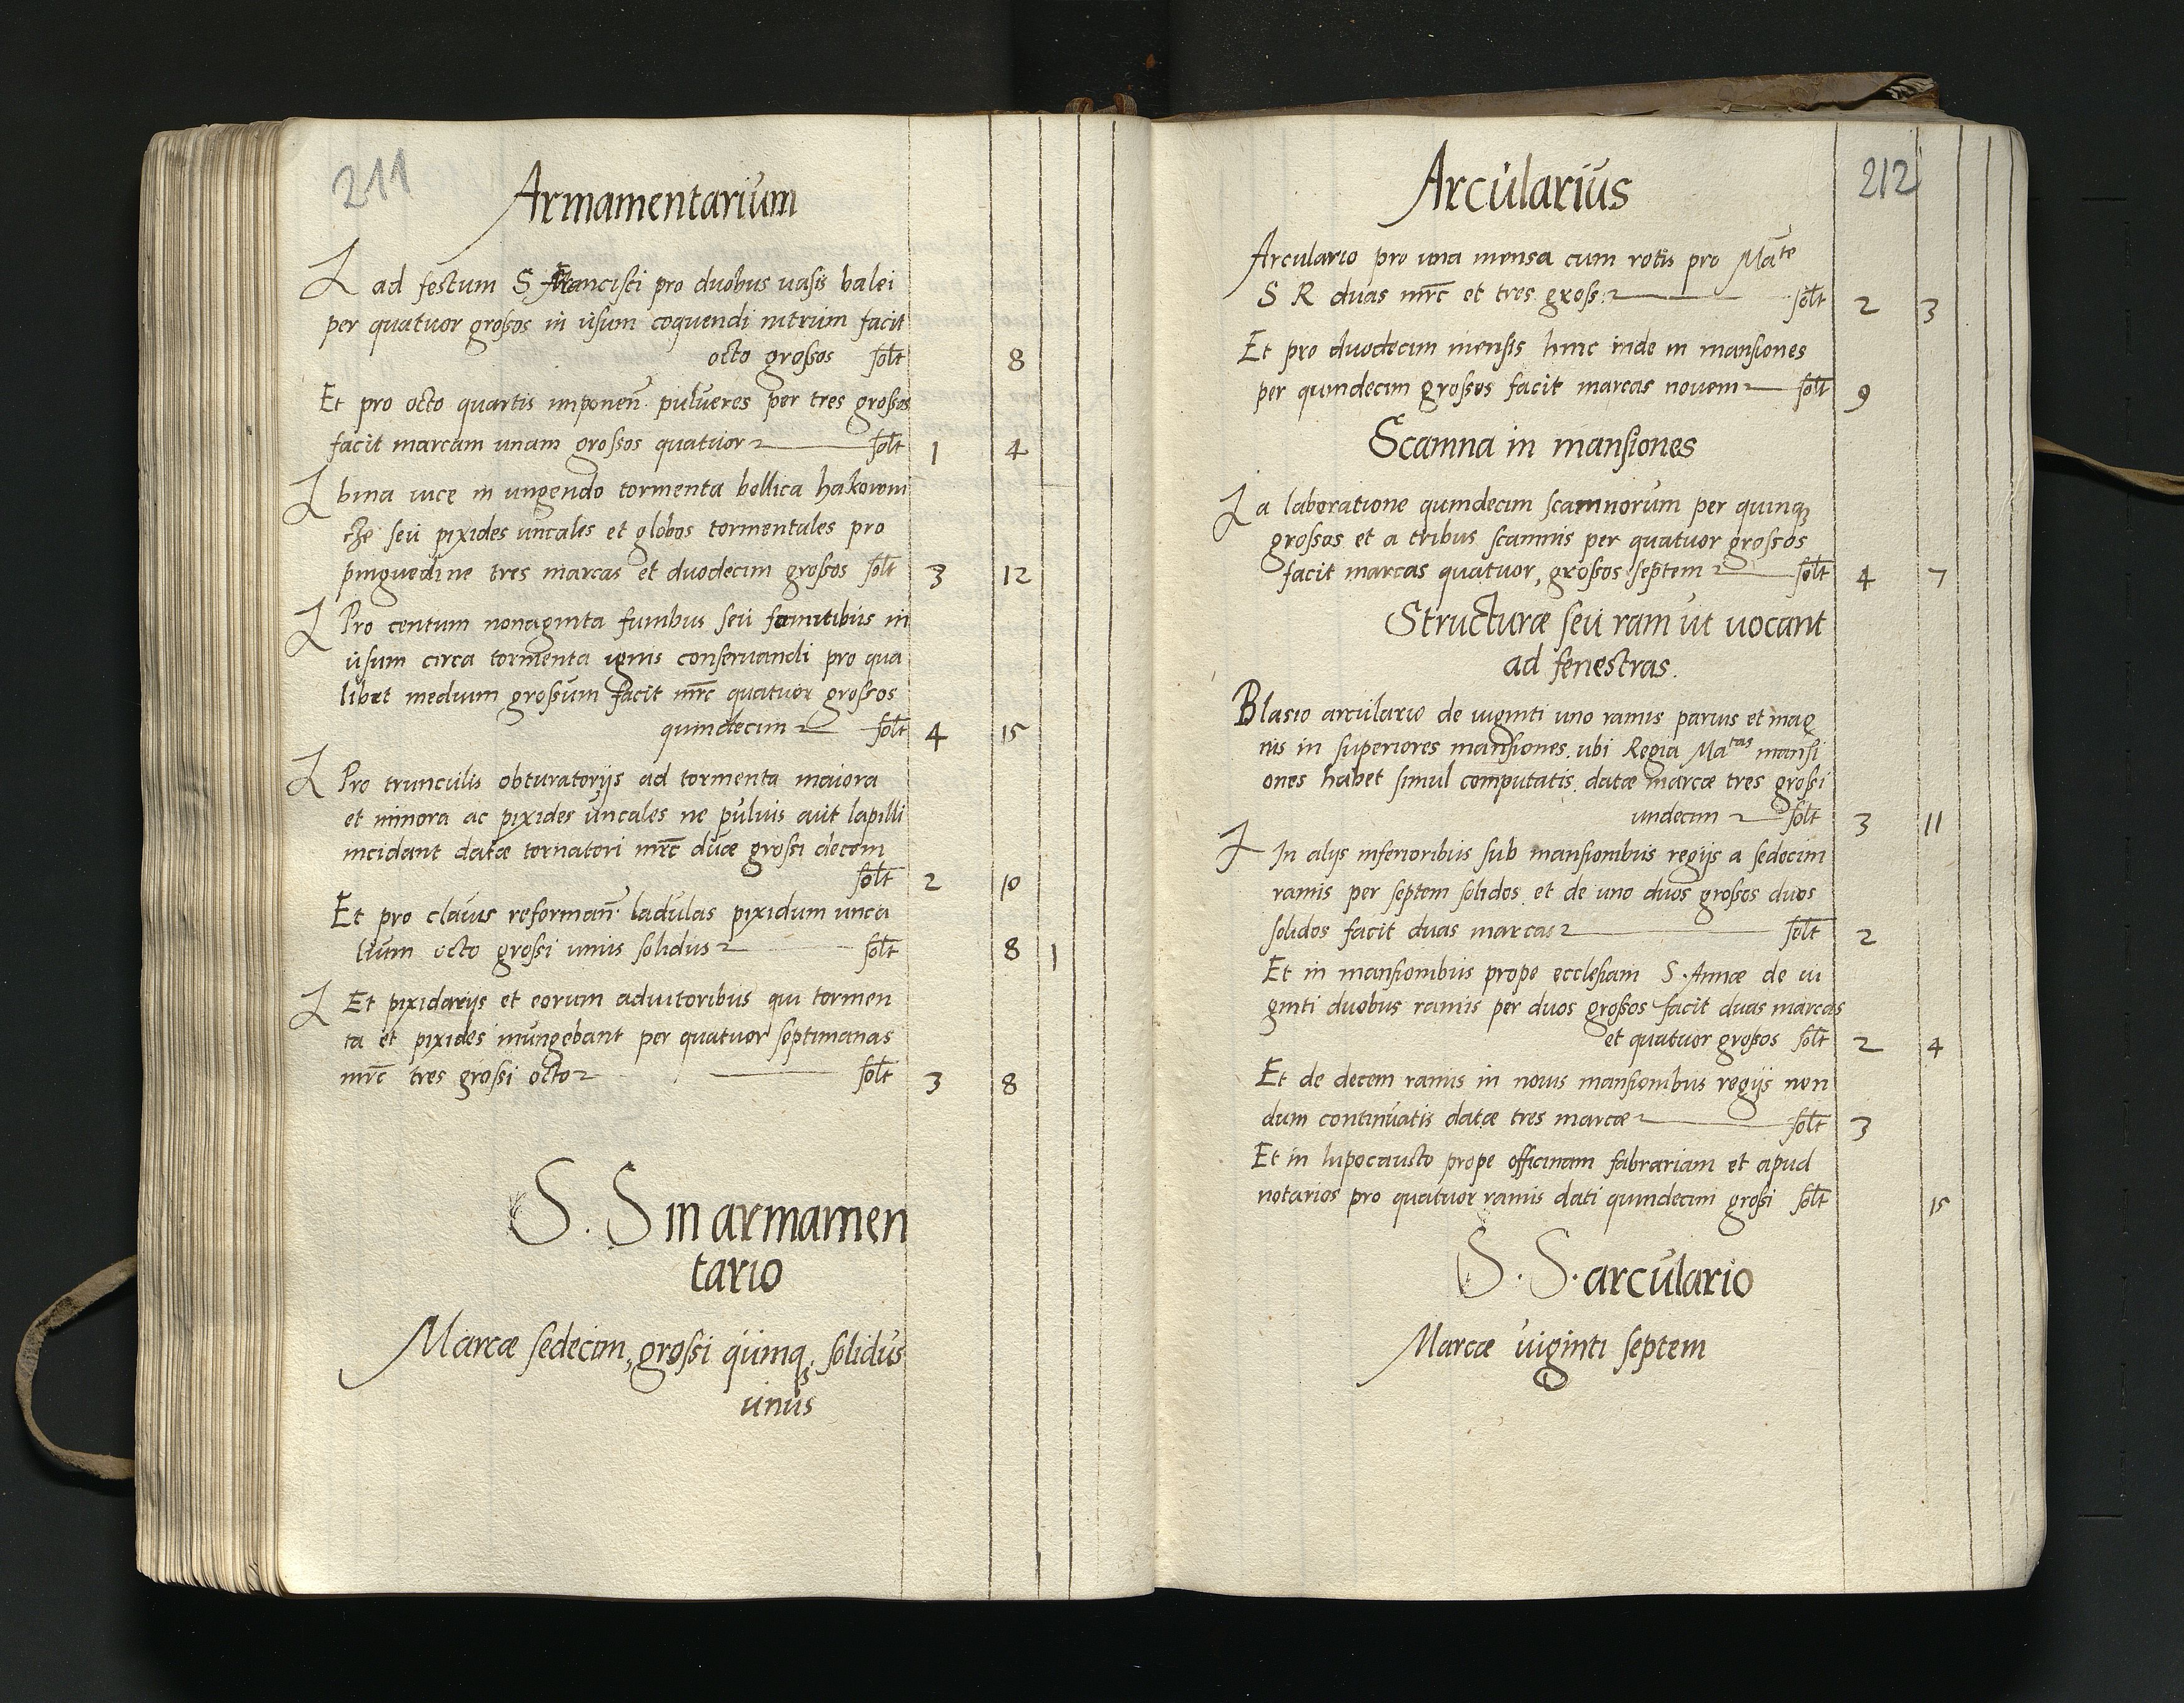 211
Armamentarium
ad festum S. Francisci pro duobus uasis balei
per quatuor grossos in usum coquendi nitrum facit
octo grossos solt 8
Et pro octo quartis imponen pulueres per tres grossos
facit marcam unam grossos quatuor solt 1 4
bina uice in ungendo tormenta bellica hakowni
cze seu pixides uncales et globos tormentales pro
pinguedine tres marcas et duodecim grossos solt 3 12
Pro centum nonaginta funibus seu fomitibus in
usum circa tormenta ignis conseruandi pro qua
libet medium grossum facit mrc quatuor grossos
quindecim solt 4 15
Pro trunculis obturatorijs ad tormenta maiora
et minora ac pixides uncales ne puluis aut lapilli
incidant datæ tornatori mrc duæ grossi decem
solt 2 10
Et pro clauis reforman ladulas pixidum unca
lium octo grossi unus solidus solt 8 1
Et pixidarijs et eorum adiutoribus qui tormen
ta et pixides inungebant per quatuor septimanas
mrc tres grossi octo solt 3 8
S. S in armamen
tario
Marcæ sedecim, grossi quinq; solidus
unus
212
Arcularius
Arculario pro una mensa cum rotis pro Mate
S R duas mrc et tres gross: solt 2 3
Et pro duodecim mensis hinc inde in mansiones
per quindecim grossos facit marcas nouem solt 9
Scamna in mansiones
a laboratione quindecim scamnorum per quinq;
grossos et a tribus scamnis per quatuor grossos
facit marcas quatuor, grossos septem solt 4 7
Structuræ seu ram ut uocant
ad fenestras.
Blasio arculario de uiginti uno ramis paruis et mag
nis in superiores mansiones ubi Regia Matas mansi
ones habet simul computatis datæ marcæ tres grossi
undecim solt 3 11
In alijs inferioribus sub mansionibus regijs a sedecim
ramis per septem solidos et de uno duos grossos duos
solidos facit duas marcas solt 2
Et in mansionibus prope ecclesiam S. Annæ de ui
ginti duobus ramis per duos grossos facit duas marcas
et quatuor grossos solt 2 4
Et de decem ramis in nouis mansionibus regijs non
dum continuatis datæ tres marcæ solt 3
Et in hipocausto prope officinam fabrariam et apud
notarios pro quatuor ramis dati quindecim grossi solt 15
S. S. arculario
Marcæ uiginti septem